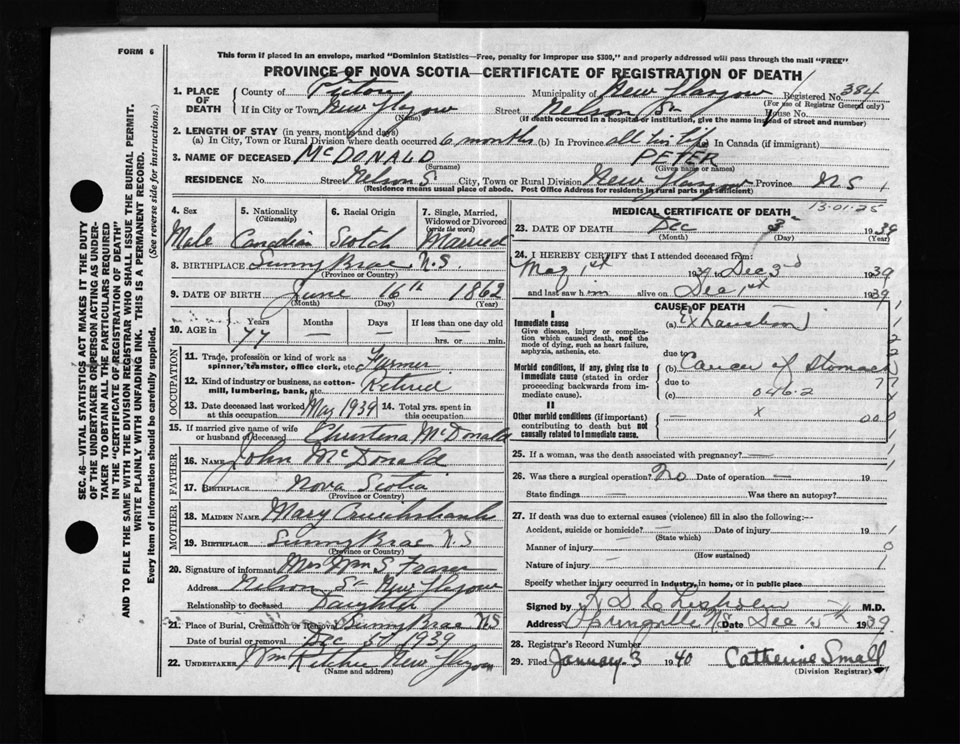 FORM 6
This form if placed in an envelope, marked "Dominion Statistics—Free, penalty for improper use $300," and properly addressed will pass through the mail "FREE"
PROVINCE OF NOVA SCOTIA—CERTIFICATE OF REGISTRATION OF DEATH
1. PLACE OF DEATH
County of Pictou Municipality of New Glasgow Registered No. 384
(For use of Registrar General only)
If in City or Town New Glasgow Street Nelson St House No.
(Name) (If death occurred in a hospital or institution, give the name instead of street and number)
2. LENGTH OF STAY (in years, months and days)
(a) In City, Town or Rural Division where death occurred 6 months (b) In Province all his life (c) In Canada (if immigrant)
3. NAME OF DECEASED McDONALD PETER
(Surname) (Given name or names)
RESIDENCE No. Street Nelson S. City, Town or Rural Division New Glasgow Province N S
(Residence means usual place of abode. Post Office Address for residents in rural parts not sufficient)
SEC. 46—VITAL STATISTICS ACT MAKES IT THE DUTY
OF THE UNDERTAKER OR PERSON ACTING AS UNDER-
TAKER TO OBTAIN ALL THE PARTICULARS REQUIRED
IN THE "CERTIFICATE OF REGISTRATION OF DEATH"
AND TO FILE THE SAME WITH THE DIVISION REGISTRAR WHO SHALL ISSUE THE BURIAL PERMIT.
WRITE PLAINLY WITH UNFADING INK. THIS IS A PERMANENT RECORD.
Every item of information should be carefully supplied. (See reverse side for instructions.)
4. Sex
Male
5. Nationality
(Citizenship)
Canadian
6. Racial Origin
Scotch
7. Single, Married,
Widowed or Divorced
(write the word)
Married
8. BIRTHPLACE Sunny Brae, N.S.
(Province or Country)
9. DATE OF BIRTH June 16th 1862
(Month) (Day) (Year)
10. AGE in Years Months Days If less than one day old
77 — — hrs. or min.
OCCUPATION
11. Trade, profession or kind of work as
spinner, teamster, office clerk, etc. Farmer
12. Kind of industry or business, as cotton-
mill, lumbering, bank, etc. Retired
13. Date deceased last worked
at this occupation May 1939
14. Total yrs. spent in
this occupation
15. If married give name of wife
or husband of deceased Christena McDonald
FATHER
16. NAME John McDonald
17. BIRTHPLACE Nova Scotia
(Province or Country)
MOTHER
18. MAIDEN NAME Mary Cruikshank
19. BIRTHPLACE Sunny Brae N.S
(Province or Country)
20. Signature of informant Mrs Wm S Fraser
Address Nelson St New Glasgow
Relationship to deceased Daughter
21. Place of Burial, Cremation or Removal Sunny Brae N.S
Date of burial or removal Dec 5th 1939
22. UNDERTAKER Wm Ritchie New Glasgow
(Name and address)
MEDICAL CERTIFICATE OF DEATH
13-01-25
23. DATE OF DEATH Dec 3 1939
(Month) (Day) (Year)
24. I HEREBY CERTIFY that I attended deceased from:
May 1st 1939 Dec 3rd 1939
and last saw him alive on Dec 1st 1939
CAUSE OF DEATH
I
Immediate cause
Give disease, injury or complica-
tion which caused death, not the
mode of dying, such as heart failure,
asphyxia, asthenia, etc.
(a) Exhaustion
due to
Morbid conditions, if any, giving rise to
immediate cause (stated in order
proceeding backwards from im-
mediate cause).
(b) Cancer of Stomach
due to
(c) 046.2
II
Other morbid conditions (if important)
contributing to death but not
causally related to immediate cause.
x
25. If a woman, was the death associated with pregnancy?—
26. Was there a surgical operation? No Date of operation — 19
State findings — Was there an autopsy?
27. If death was due to external causes (violence) fill in also the following:—
Accident, suicide or homicide? — Date of injury 19
(State which)
Manner of injury —
(How sustained)
Nature of injury —
Specify whether injury occurred in industry, in home, or in public place
Signed by M.D.
Address Springville NS Date Dec 1939
28. Registrar's Record Number
29. Filed January 3 1940 Catherine Small
(Division Registrar)